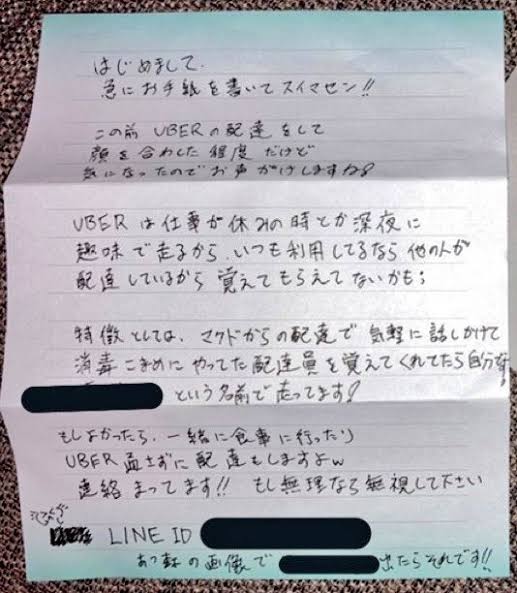 はじめまして、
急にお手紙を書いてスイマセン!!
この前 UBERの配達をして
顔を合わした程度だけど
気になったのでお声がけしますね!
UBERは仕事が休みの時とか深夜に
趣味で走るから、いつも利用してるなら他の人が
配達しているから覚えてもらえてないかも;
特徴としては、マクドからの配達で気軽に話しかけて
消毒こまめにやってた配達員を覚えてくれてたら自分です!
という名前で走ってます!
もしよかったら、一緒に食事に行ったり
UBER通さずに配達もしますよw
連絡まってます!! もし無理なら無視して下さい
LINE ID
の画像で 出たらそれです!!